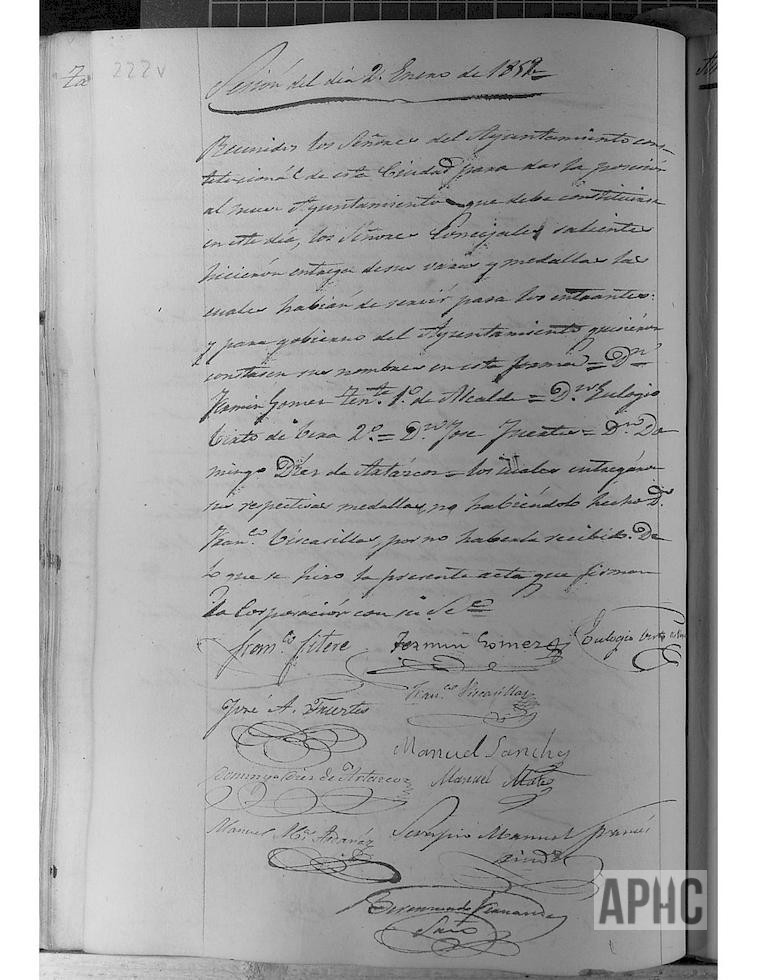 Za 222v
Sesión del dia 2. Enero de 1852=
Reunidos los Señores del Ayuntamiento cons-
titucional de esta Ciudad para dar la posesión
al nuevo Ayuntamiento que debe constituirse
en este día, los Señores Concejales salientes
hicierón entrega de sus varas y medallas las
cuales habián de servir para los entrantes:
y para gobierno del Ayuntamiento quisierón
constasen sus nombres en esta forma = Dn
Fermin Gomez Tente. 1.º de Alcalde = D.n Eulogio
de 2.º = D.n Jose Fuertes = D.n Do-
mingo Diez de Artázcoz = los cuales entregáron
sus respectivas medallas, no habiéndolo hecho D.
Fran.co Viscasillas por no haberla recibido. De
lo que se hizo la presente acta que firman
la Corporación con su S
Fran.co Sitere Fermin Gomez Eulogio
Fran.co Viscasillas
José A. Fuertes
Manuel Sanchez
Domingo Diez de Artazcoz Manuel
Manuel M.a Serapio Manuel
sind
Bermundo Fernandez
Srio
APHC